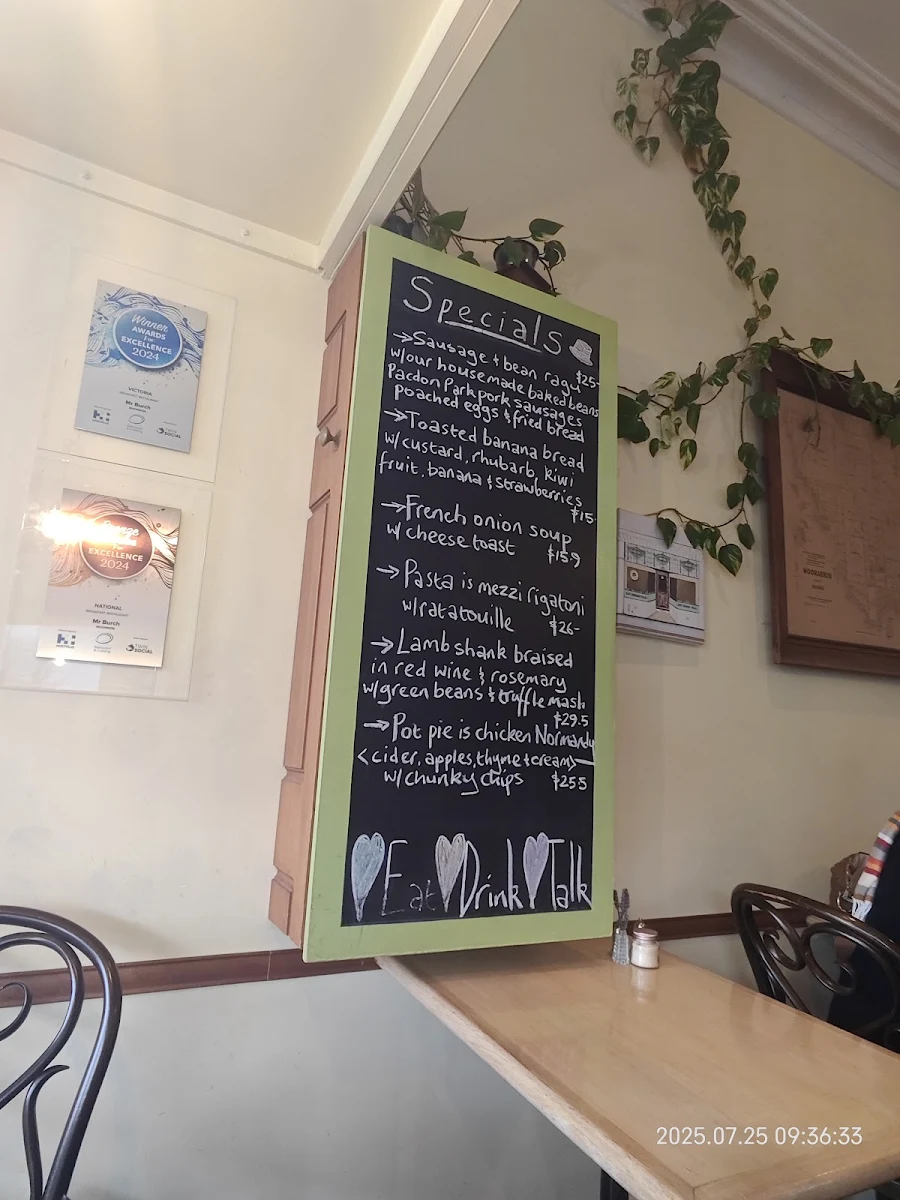 Winner
AWARDS
For
EXCELLENCE
2024
VICTORIA
Mr Burch
SOCIAL
EXCELLENCE
2024
NATIONAL
Mr Burch
SOCIAL
Specials
→Sausage & bean ragu
$25-
w/our housemade baked beans
Pacdon Park pork sausages
poached eggs & fried bread
→Toasted banana bread
w/custard, rhubarb, kiwi
fruit, banana & strawberries
$15-
→French onion soup
w/cheese toast $15.9
→Pasta is mezzi rigatoni
w/ratatouille $26-
→Lamb shank braised
in red wine & rosemary
w/green beans & truffle mash
$29.5
→Pot pie is chicken Normandy
<cider, apples, thyme & cream>
w/chunky chips $25.5
Eat Drink Talk
2025.07.25 09:36:33